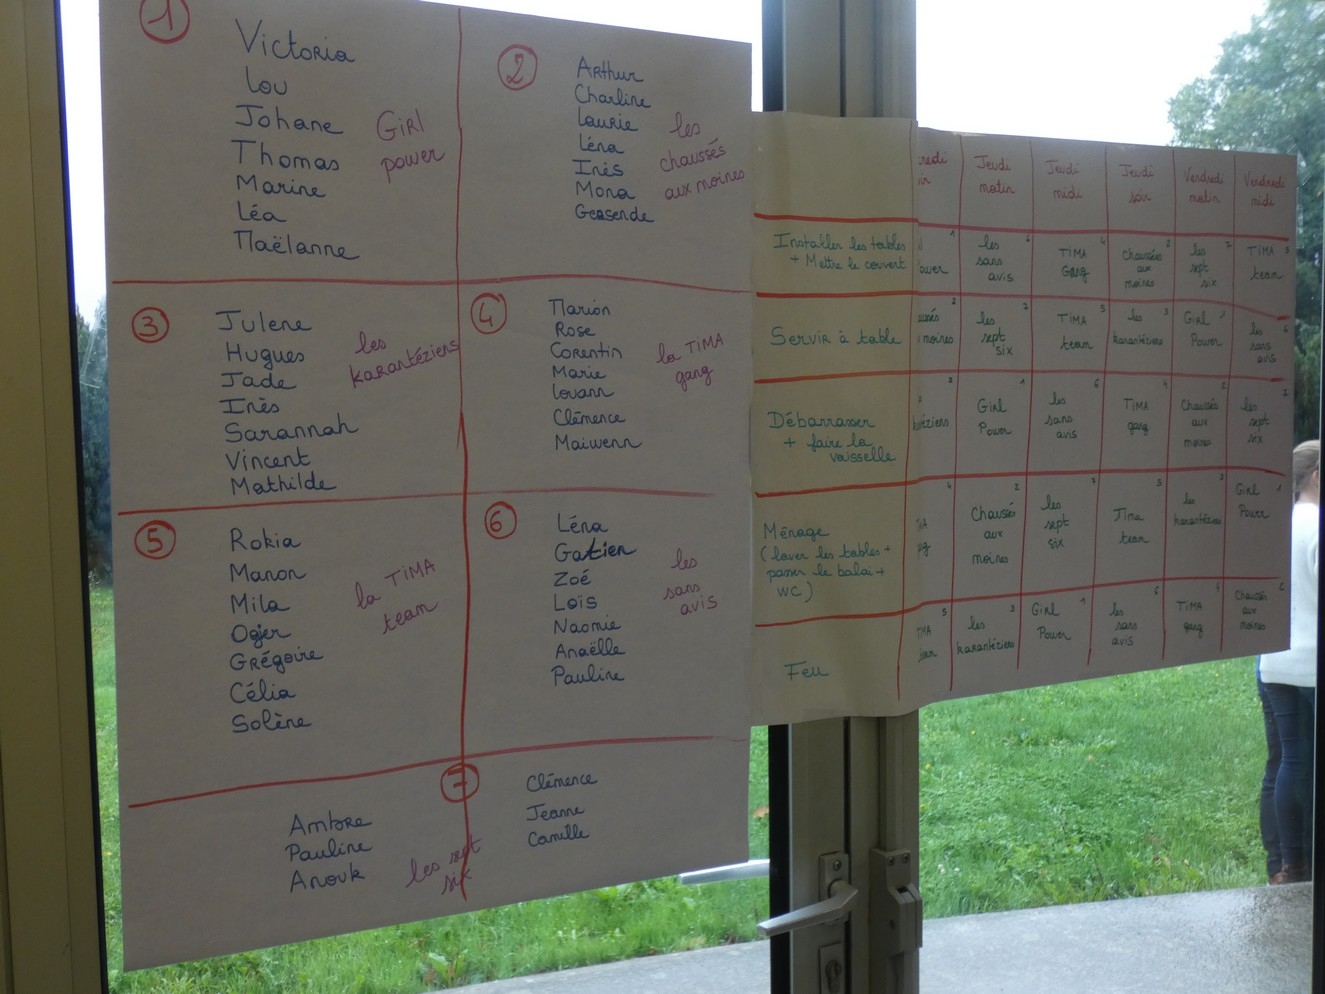 1
Victoria
Lou
Johane
Thomas
Marine
Léa
Maëlanne
Girl
power
2
Arthur
Charline
Laurie
Léna
Inès
Mona
les
chaussés
aux moines
3
Julene
Hugues
Jade
Inès
Sarannah
Vincent
Mathilde
les
karantéziens
4
Marion
Rose
Corentin
Marie
Louann
Clémence
Maiwenn
la TIMA
gang
5
Rokia
Manon
Mila
Ogier
Grégoire
Célia
Solène
la TIMA
team
6
Léna
Gatien
Zoé
Loïs
Naomie
Anaëlle
Pauline
les
sans
avis
7
Ambre
Pauline
Anouk
les sept
six
Clémence
Jeanne
Camille
credi
ir
Jeudi
matin
Jeudi
midi
Jeudi
soir
Vendredi
matin
Vendredi
midi
Installer les tables
+ Mettre le couvert
1
ower
les 6
sans
avis
TIMA 4
Gang
Chaussés 2
aux
moines
les 7
sept
six
TIMA 5
team
Servir à table
2
ussés
moines
les 7
sept
six
TIMA 5
team
les 3
karantéziens
Girl 1
Power
les 6
sans
avis
Débarrasser
+ faire la
vaisselle
3
antéziens
Girl 1
Power
les 6
sans
avis
TIMA 4
gang
Chaussés 2
aux
moines
les 7
sept
six
Ménage
(laver les tables +
passer le balai +
WC)
4
MA
ng
Chaussés 2
aux
moines
les 7
sept
six
Tima 5
team
les 3
karantéziens
Girl 1
Power
Feu
5
TIMA
team
les 3
karantéziens
Girl 1
Power
les 6
sans
avis
TIMA 4
gang
Chaussés
aux
moines